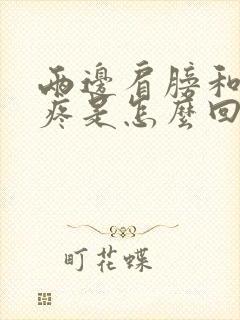 兩邊肩膀和
疼是怎麼回
町花蝶